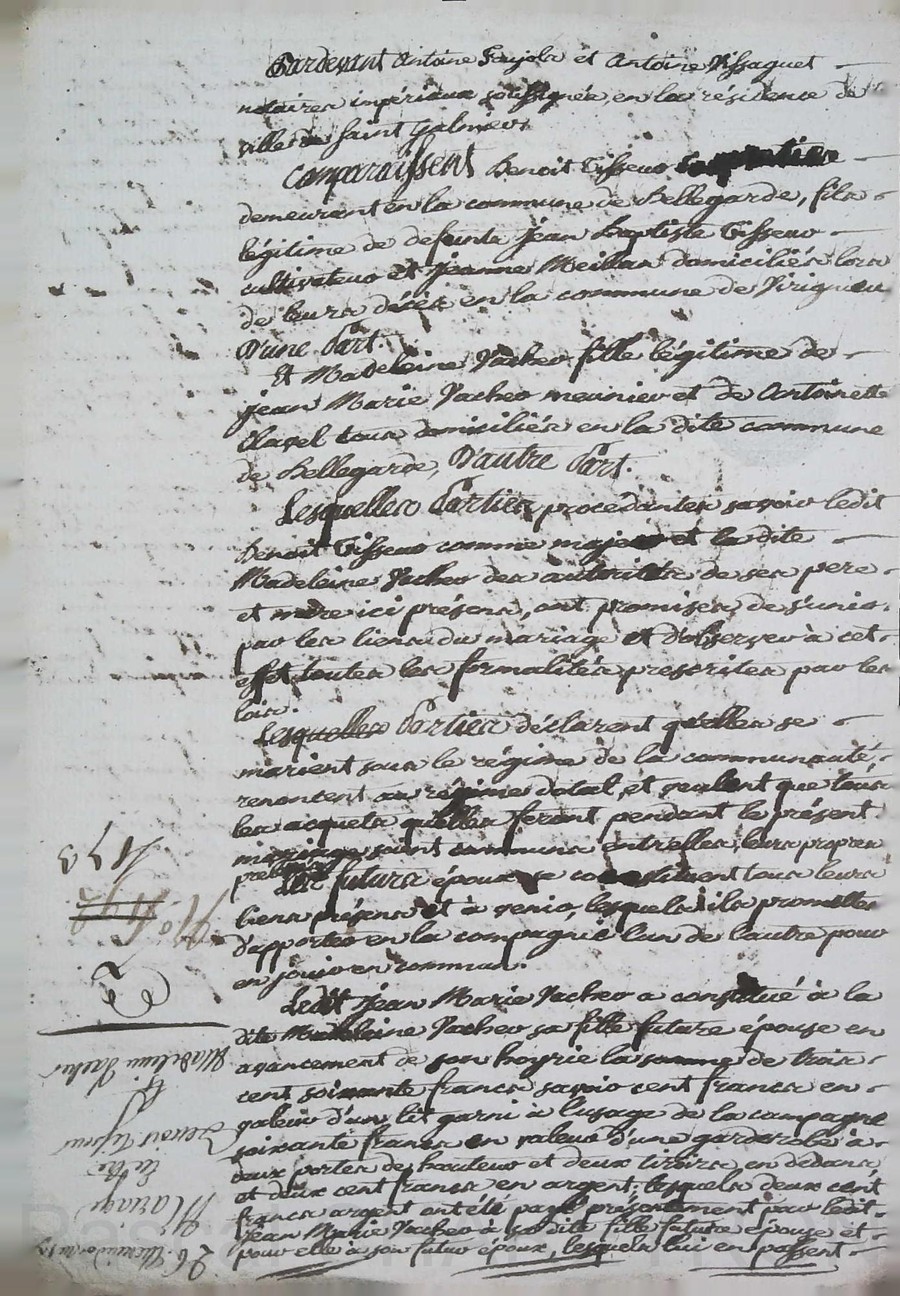 Pardevant Antoine Fayolx et Antoine Vissaguet
notaires impériaux soussignés, en la résidence de
ville de Saint Galmier.
Comparaissent Benoit Tisseur
demeurant en la commune de Bellegarde, fils
légitime de defunts Jean Baptiste Tisseur
cultivateur et Jeanne Meillan domiciliés lors
de leurs décès en la commune de Virigneu
D'une Part.
Et Madeleine Vacher fille légitime de
Jean Marie Vacher meunier et de Antoinette
tous domiciliés en la dite commune
de Bellegarde, D'autre Part.
Lesquelles Parties procédantes savoir ledit
Benoit Tisseur comme majeur et la dite
Madeleine Vacher des autorités de ses pere
et mère ici présens, ont promises de s'unir
par les liens du mariage et d'observer à cet
effet toutes les formalités prescrites par les
lois.
Lesquelles Parties déclarent qu'elles se
marient sous le régime de la communauté,
renoncent au régime dotal, et veulent que tous
les acquets qu'elles feront pendant le présent
mariage soient communs entr'elles, leurs propres
Les futurs époux se constituent tous leurs
biens présens et à venir, lesquels ils promettes
d'apporter en la compagnie l'un de l'autre pour
en jouir en commun.
Ledit Jean Marie Vacher a constitué à la
dite Madeleine Vacher sa fille future épouse en
avancement de son hoyrie la somme de trois
cent soixante francs savoir cent francs en
valeur d'un lit garni à l'usage de la campagne
soixante francs en valeur d'une garderobe à
deux portes de hauteur et deux tiroirs en dedans
et deux cent francs en argent; lesquels deux cent
francs argent ont été payé présentement par ledit
Jean Marie Vacher à sa dite fille future épouse et
pour elle à son futur époux, lesquels lui en passent
173
Mariage
Benoit Tisseur
Madeleine Vacher